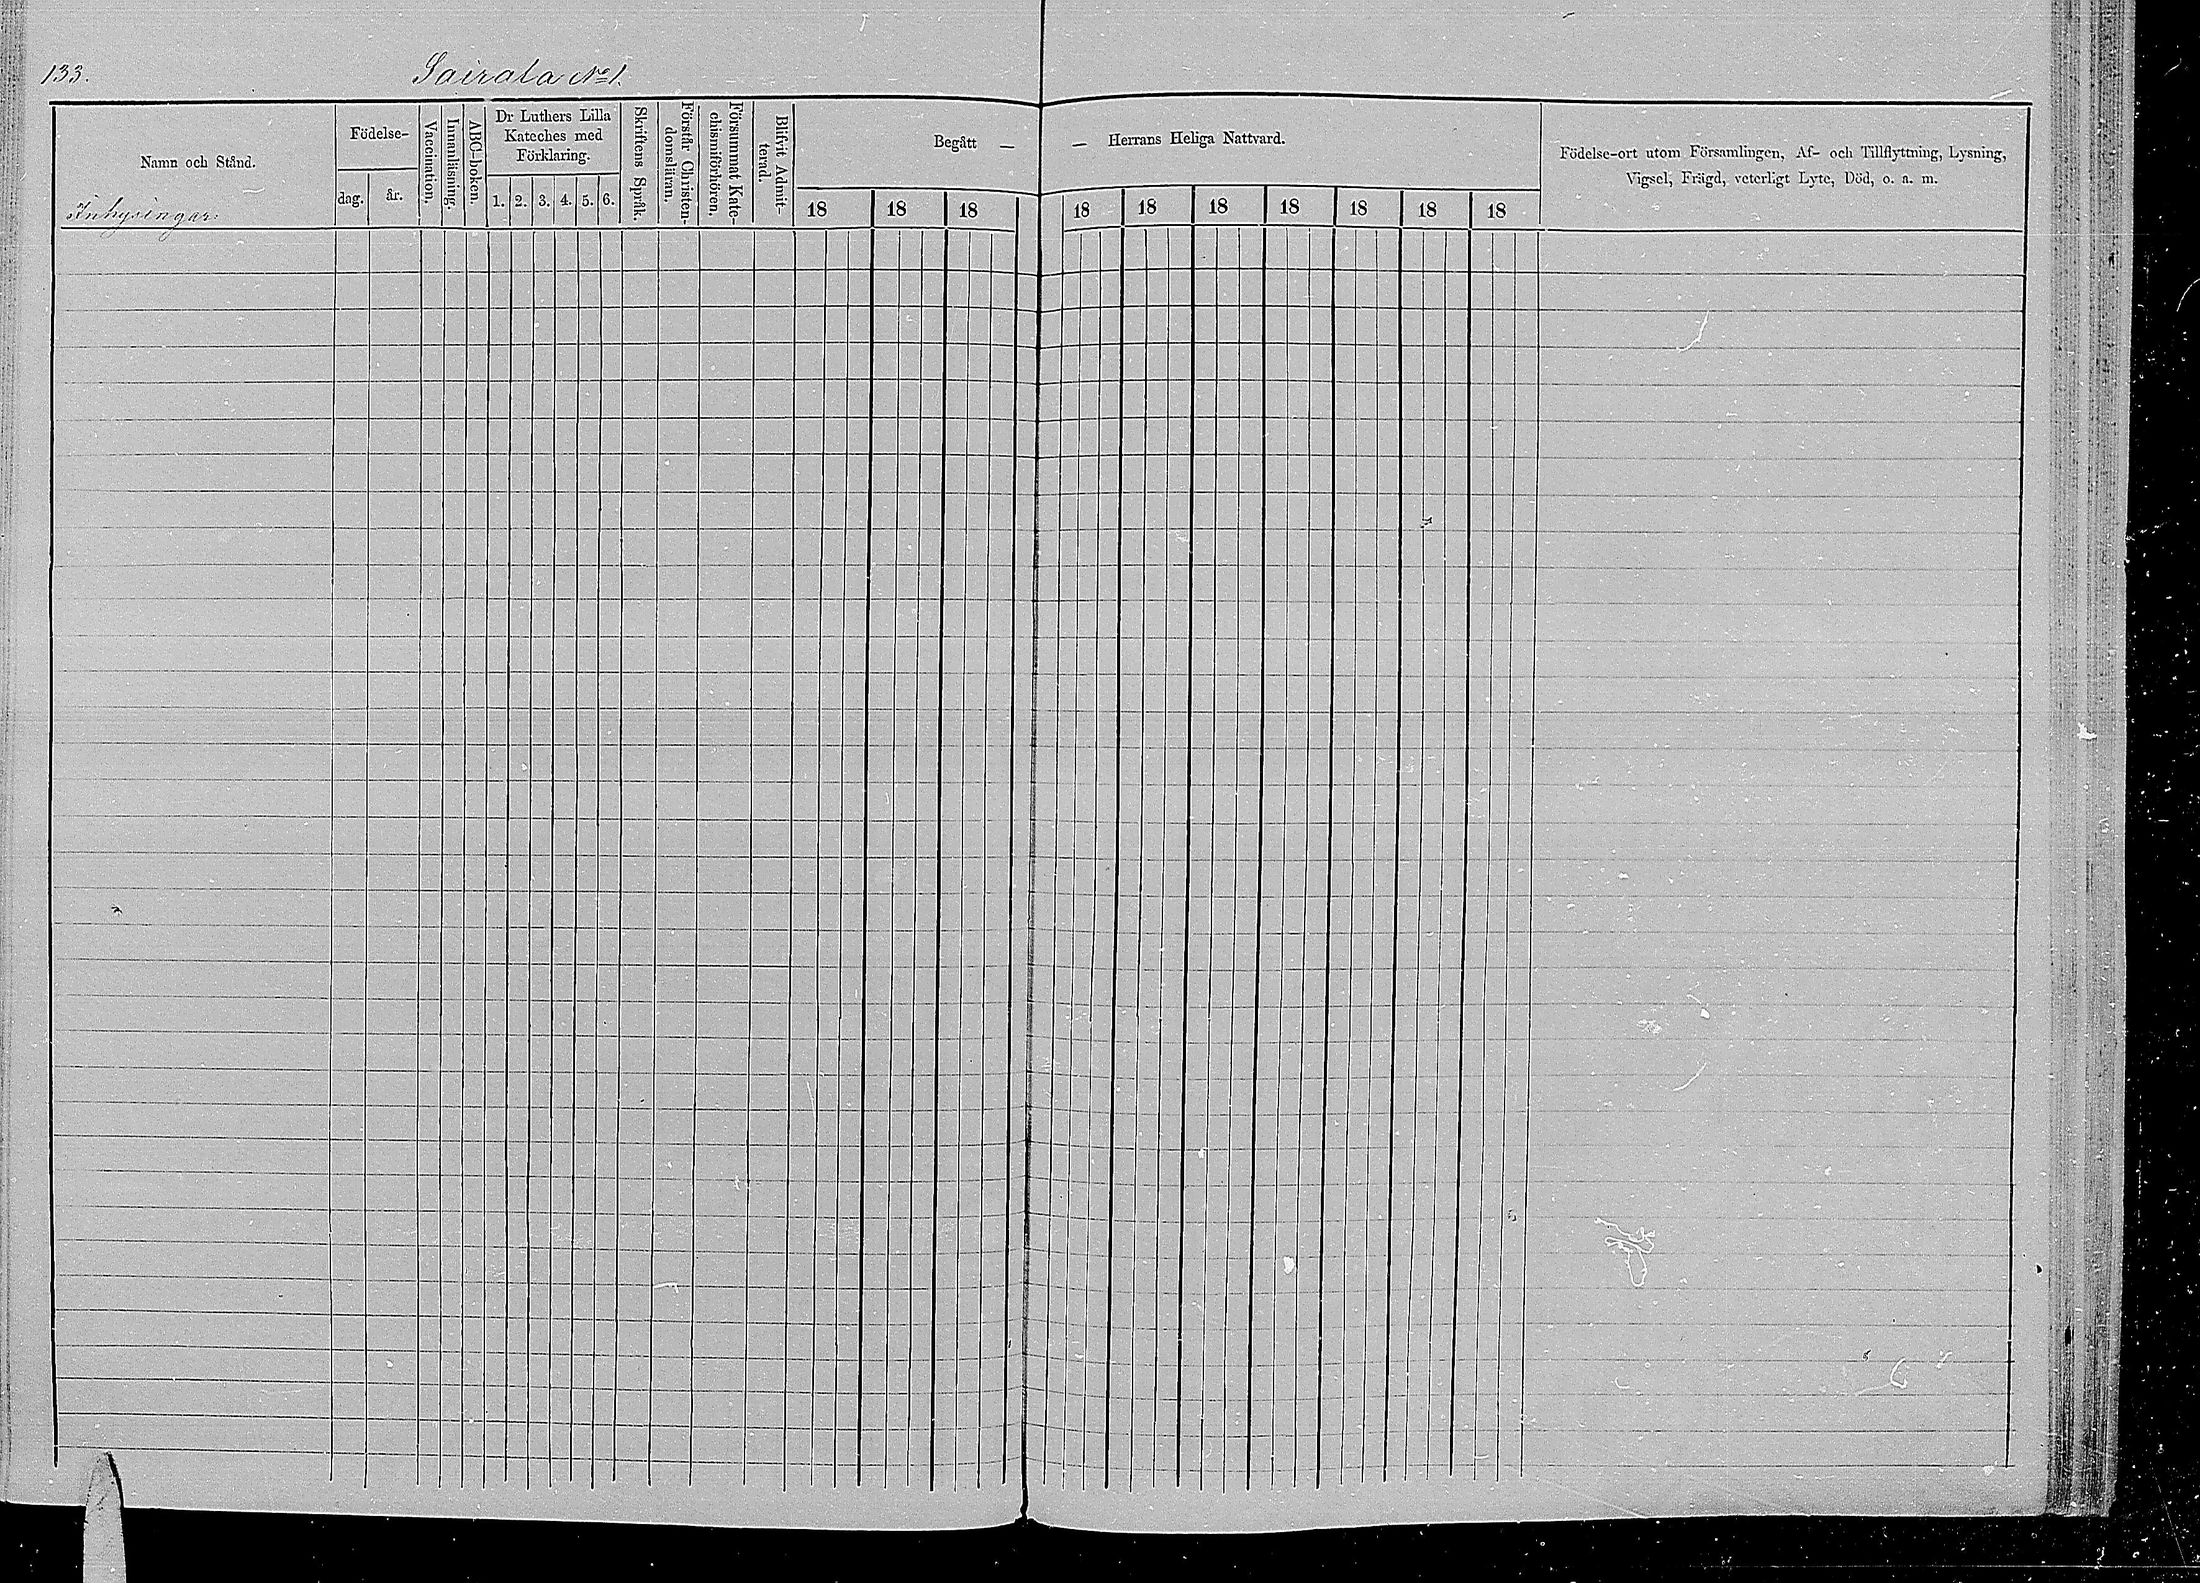 133.
Sairala No 1.
Namn och Stånd.
Inhysingar:
Födelse-
dag.
år.
Vaccination.
Innanläsning.
ABC-boken.
Dr Luthers Lilla
Kateches med
Förklaring.
1. 2. 3. 4. 5. 6.
Skriftens Språk.
Förstår Christen-
domsläran.
Försummat Kate-
chismiförhören.
Blifvit Admit-
terad.
Begått —
18 18 18
— Herrans Heliga Nattvard.
18 18 18 18 18 18 18
Födelse-ort utom Församlingen, Af- och Tillflyttning, Lysning,
Vigsel, Frägd, veterligt Lyte, Död, o. a. m.